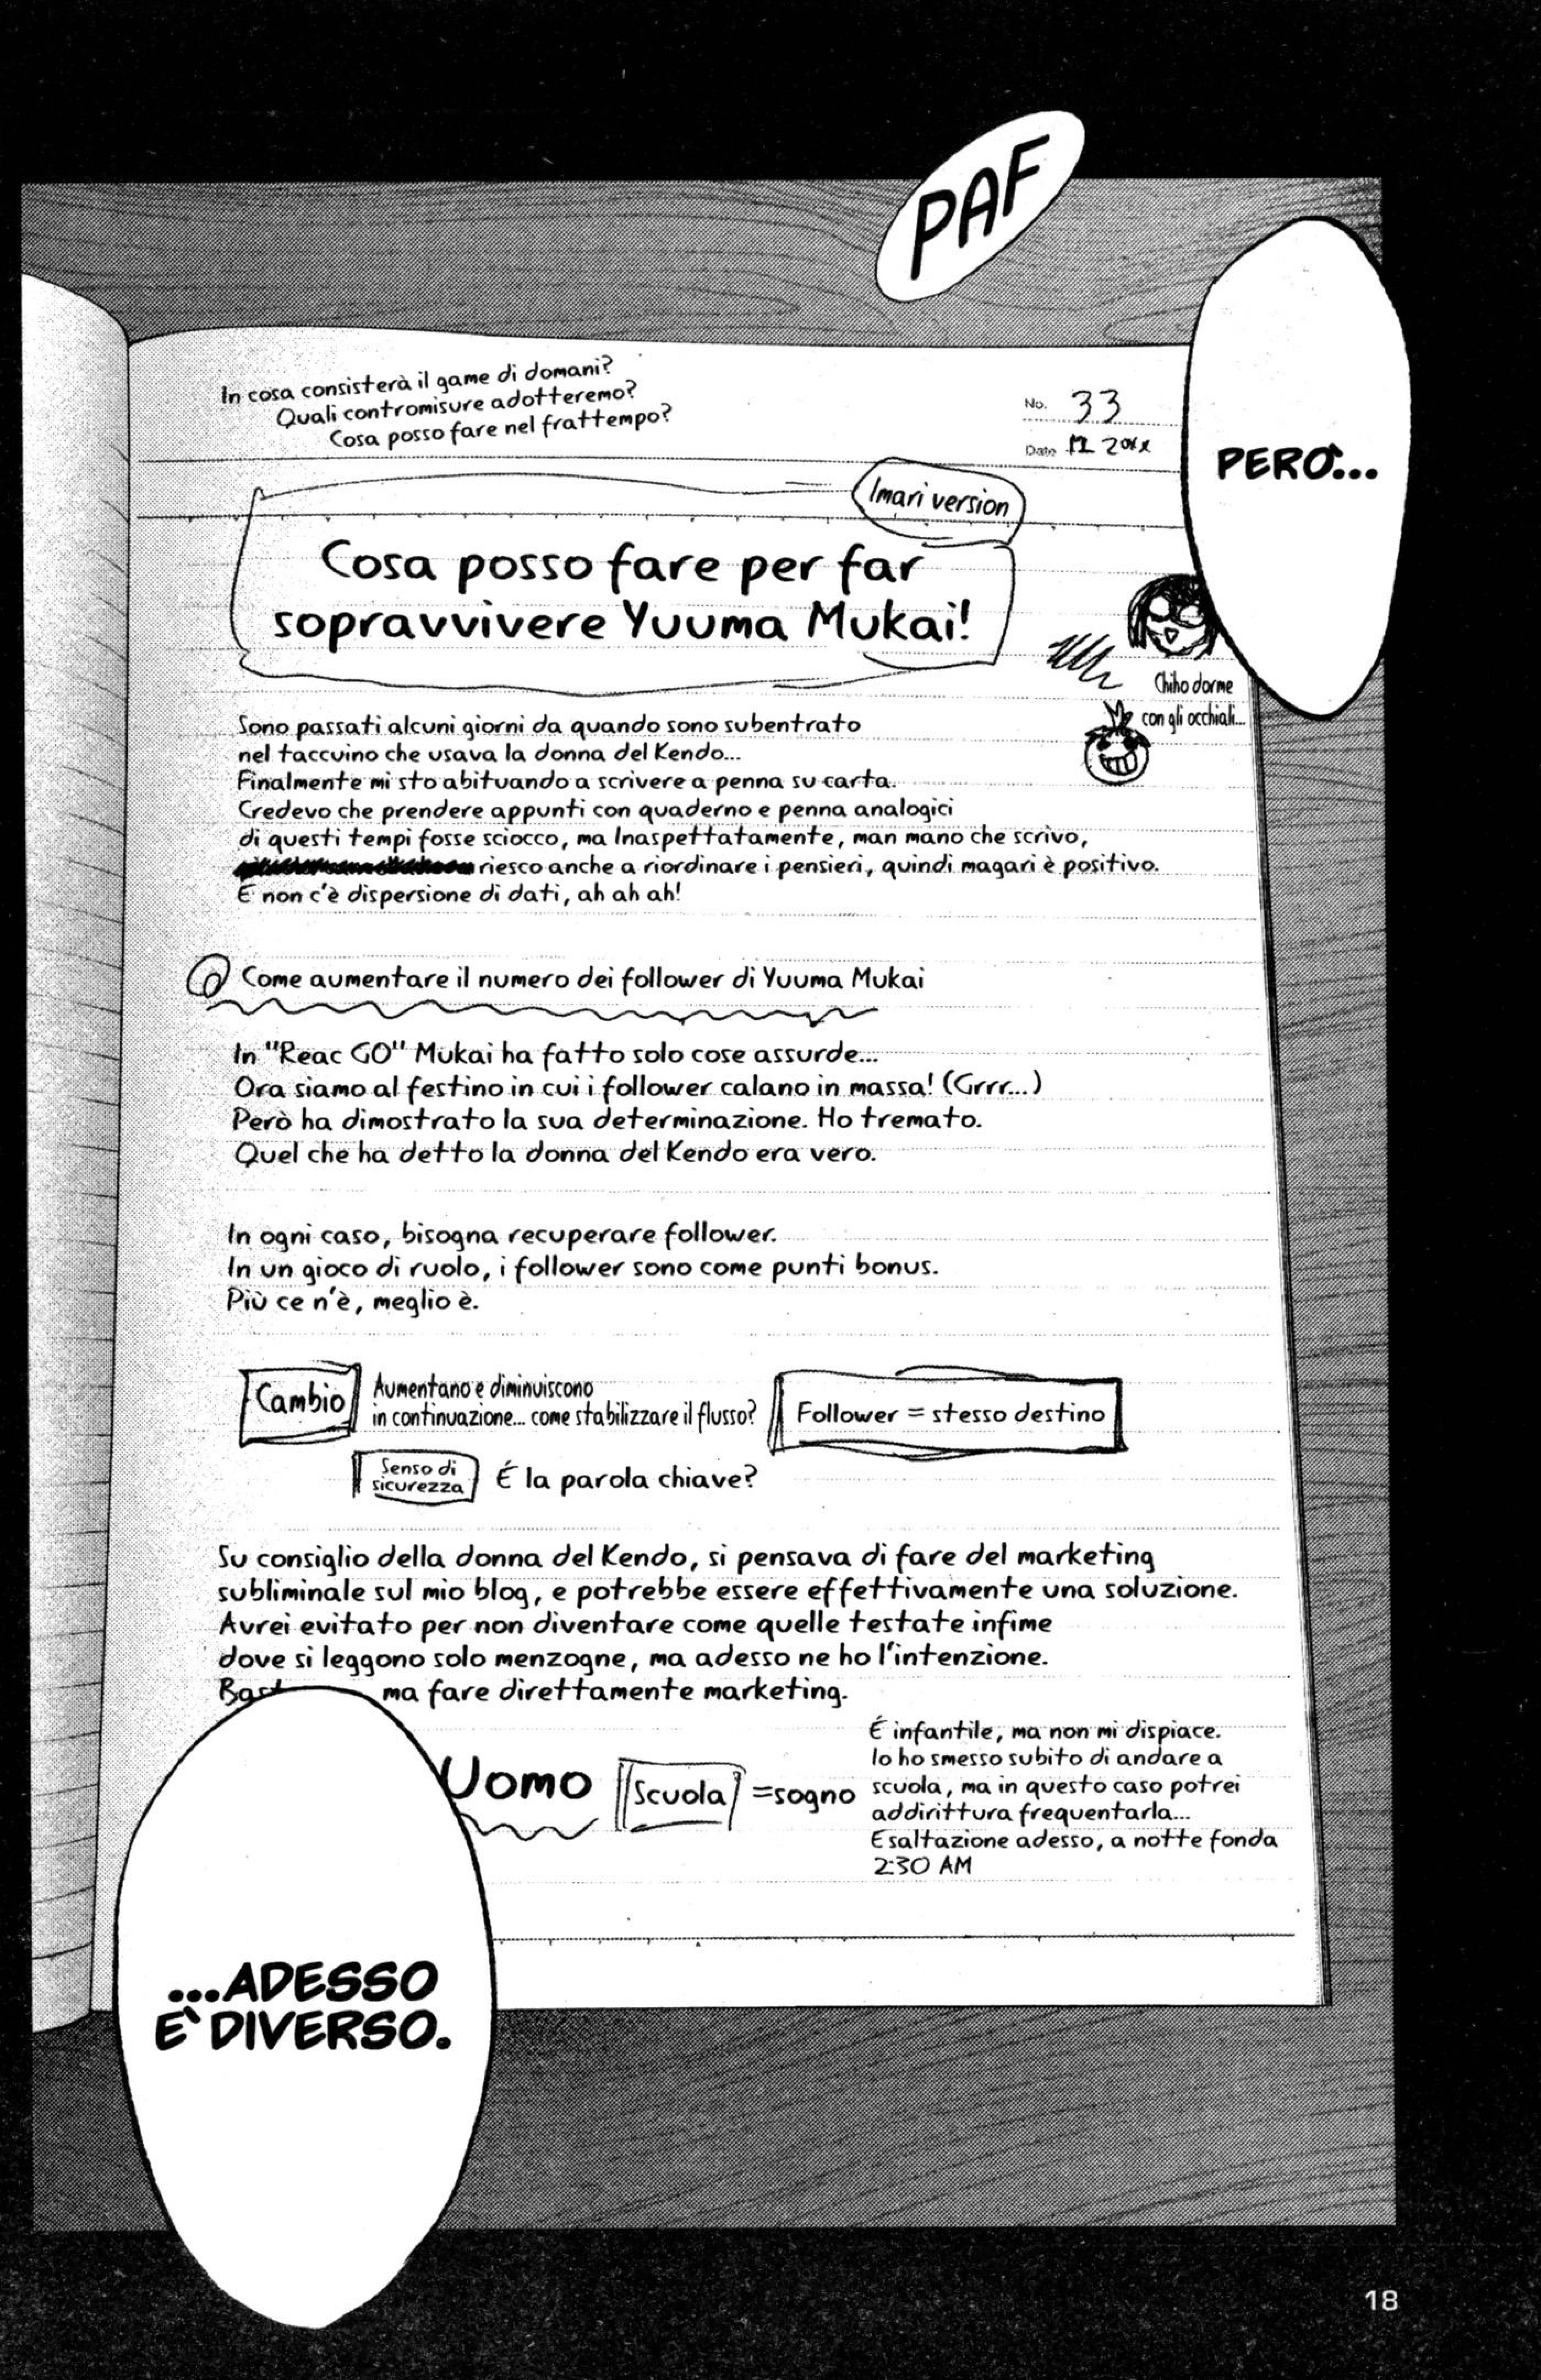 PAF
PERÒ...
In cosa consisterà il game di domani?
Quali contromisure adotteremo?
Cosa posso fare nel frattempo?
No. 33
Date 20XX
Imari version
Cosa posso fare per far
sopravvivere Yuuma Mukai!
Chiho dorme
con gli occhiali...
Sono passati alcuni giorni da quando sono subentrato
nel taccuino che usava la donna del Kendo...
Finalmente mi sto abituando a scrivere a penna su carta.
Credevo che prendere appunti con quaderno e penna analogici
di questi tempi fosse sciocco, ma Inaspettatamente, man mano che scrivo,
riesco anche a riordinare i pensieri, quindi magari è positivo.
E non c'è dispersione di dati, ah ah ah!
Come aumentare il numero dei follower di Yuuma Mukai
In "Reac GO" Mukai ha fatto solo cose assurde...
Ora siamo al festino in cui i follower calano in massa! (Grrr...)
Però ha dimostrato la sua determinazione. Ho tremato.
Quel che ha detto la donna del Kendo era vero.
In ogni caso, bisogna recuperare follower.
In un gioco di ruolo, i follower sono come punti bonus.
Più ce n'è, meglio è.
Cambio
Aumentano e diminuiscono
in continuazione... come stabilizzare il flusso?
Follower = stesso destino
Senso di
sicurezza
É la parola chiave?
Su consiglio della donna del Kendo, si pensava di fare del marketing
subliminale sul mio blog, e potrebbe essere effettivamente una soluzione.
Avrei evitato per non diventare come quelle testate infime
dove si leggono solo menzogne, ma adesso ne ho l'intenzione.
ma fare direttamente marketing.
Uomo
Scuola
=sogno
É infantile, ma non mi dispiace.
Io ho smesso subito di andare a
scuola, ma in questo caso potrei
addirittura frequentarla...
Esaltazione adesso, a notte fonda
2:30 AM
...ADESSO
E' DIVERSO.
18